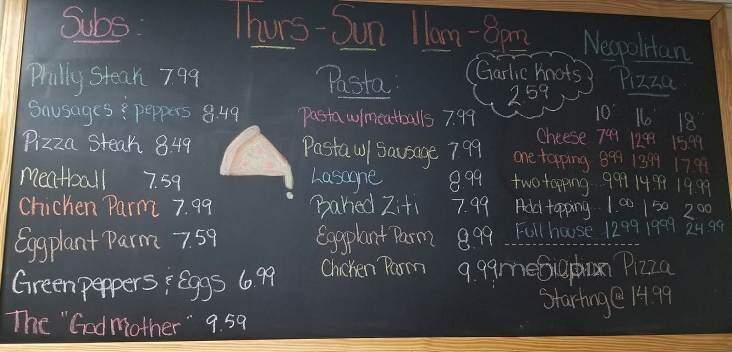 Subs:
Thurs - Sun 11am - 8pm
Philly Steak 7.99
Sausages & peppers 8.49
Pizza Steak 8.49
Meatball 7.59
Chicken Parm 7.99
Eggplant Parm 7.59
Green peppers & Eggs 6.99
The "Godmother" 9.59
Pasta:
Pasta w/meatballs 7.99
Pasta w/ Sausage 7.99
Lasagne 8.99
Baked Ziti 7.99
Eggplant Parm 8.99
Chicken Parm 9.99
Garlic Knots
2.59
Neopolitan
Pizza
10" 16" 18"
Cheese 7.99 12.99 15.99
one topping 8.99 13.99 17.99
two topping... 9.99 14.99 19.99
Add topping... 1.00 1.50 2.00
Full house 12.99 19.99 24.99
Pizza
Starting @ 14.99